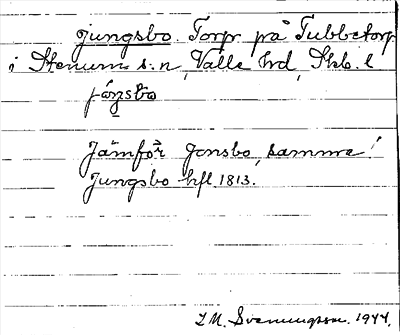 Jungsbo. Torp på Tubbetorp
i Stenums s:n, Valle hd, Skb. l
Jämför Jonsbo, samma!
Jungsbo hfl 1813.
L M. Svenungsson. 1944.